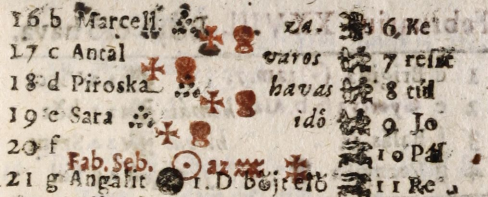 16 b Marcell za. 6 Ke
17 c Antal varos 7 
18 d Piroska havas 8 
19 e Sara idô 9 Jo
20 f Fab. Seb. az 10 Pál
21 g 1. D bőjtelô 11 Re